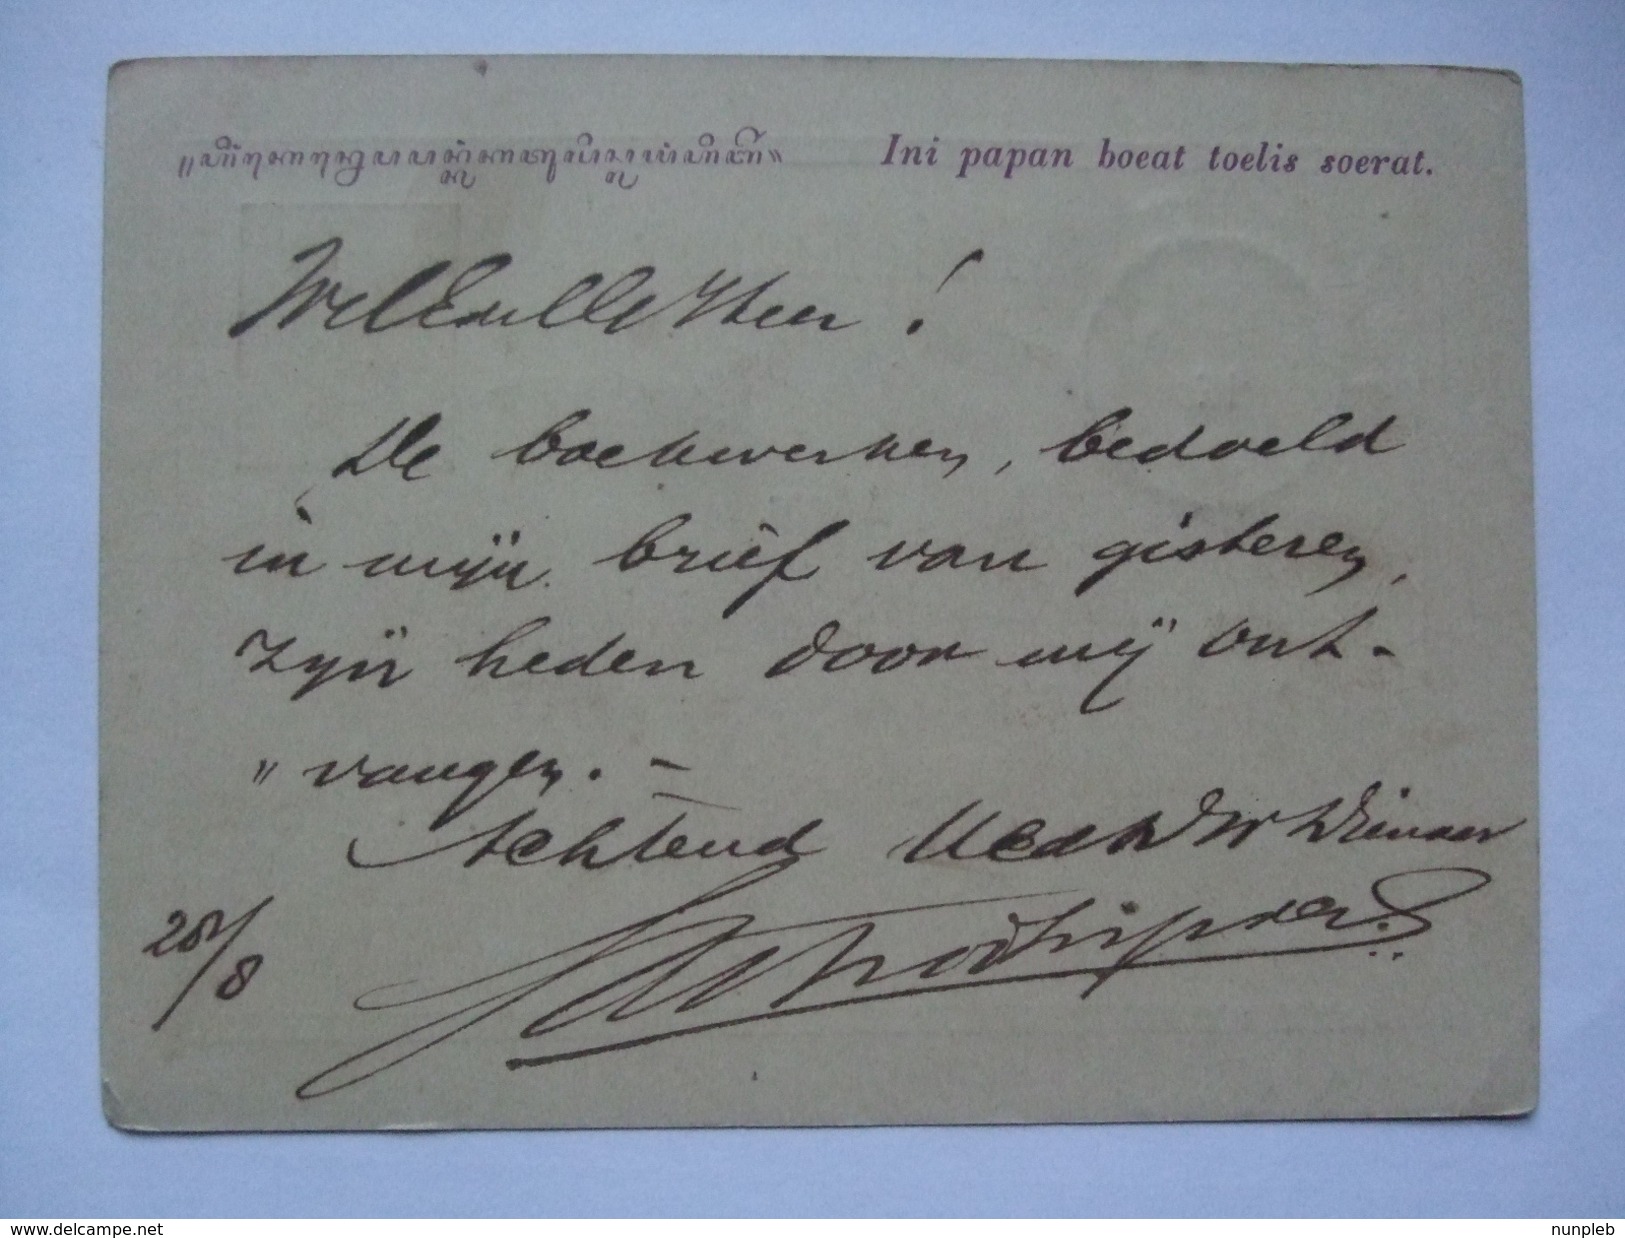 Ini papan boeat toelis soerat.
WelEdelle Heer !
De boekwerken, bedoeld
in mijn brief van gisteren,
zijn heden door mij ont-
„ vangen. -
Achtend UEd Dw Dienaar
/8
www.delcampe.net
nunpleb